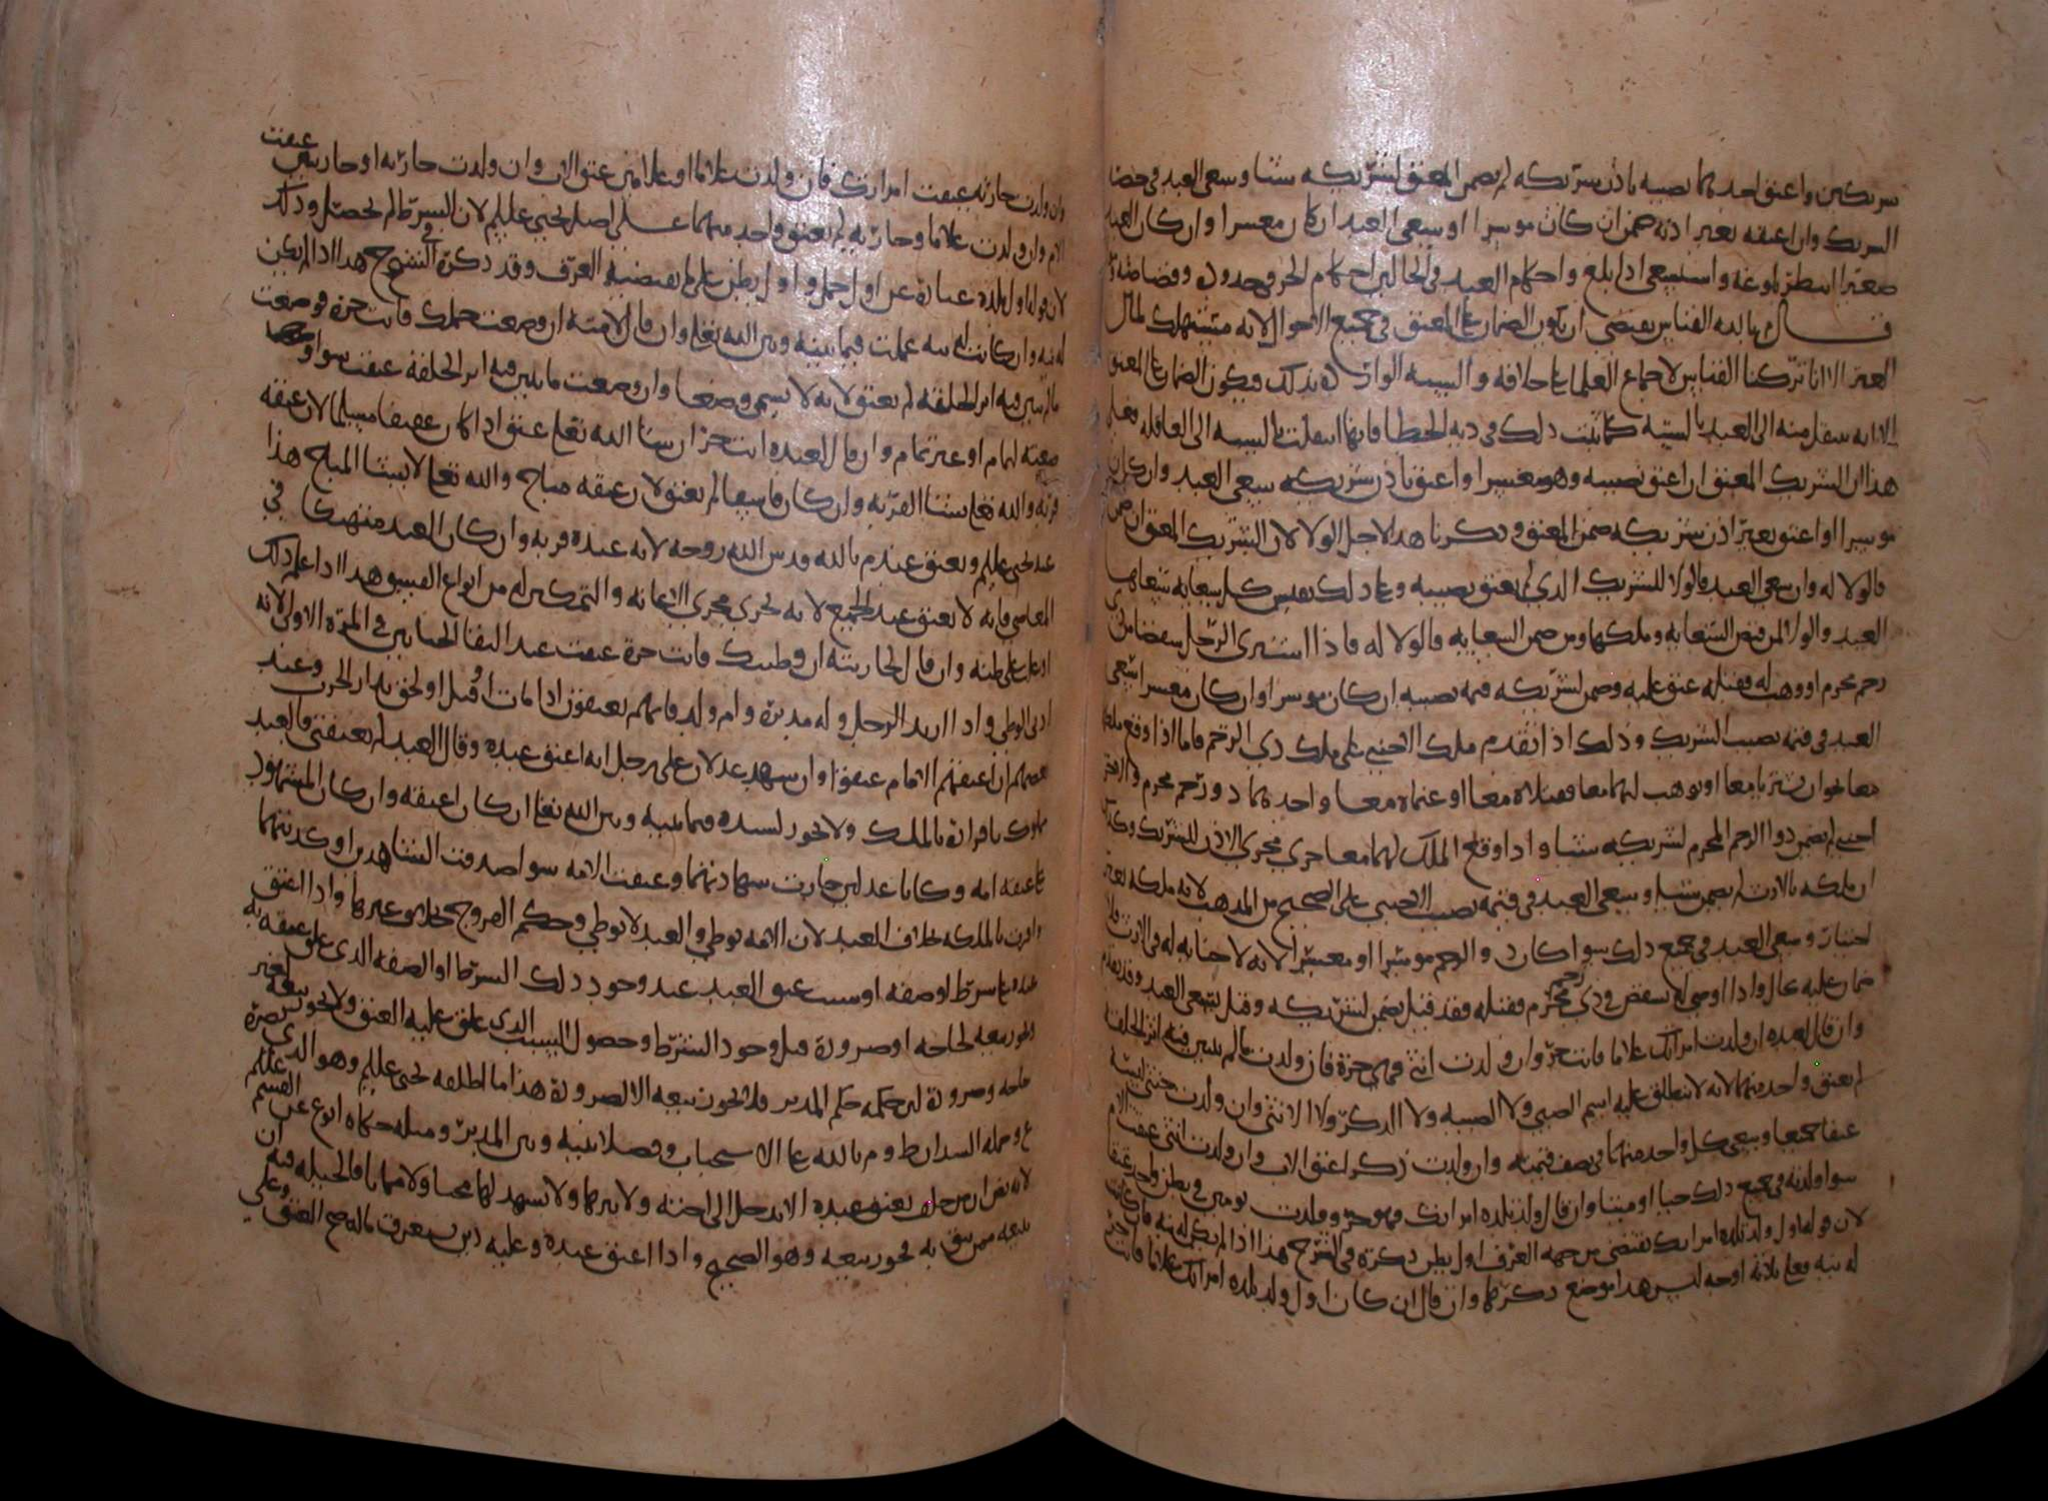 شريكين واعتق احدهما نصيبه باذن شريكه لم يضمن المعتق لشريكه شيئا وسعى العبد في حصة
الشريك وان اعتقه بغير اذنه ضمن ان كان موسرا او سعى العبد ان كان معسرا وان كان العبد
صغيرا انتظر بلوغه واستسعى اذا بلغ واحكام العبد في الحالين احكام الحر في حدوده
قال م بالله القياس يقتضي ان يكون الضمان على المعتق في جميع الاحوال لانه مستهلك لمال
الغير الا انا تركنا القياس لاجماع العلماء على خلافه والسنة الواردة بذلك فيكون الضمان على المعتق
الا انه ينتقل منه الى العبد بالسنة كما ثبت ذلك في دية الخطا فانها انتقلت بالسنة الى العاقلة فعلى
هذا ان الشريك المعتق ان اعتق نصيبه وهو معسر او اعتق باذن شريكه سعى العبد وان كان
موسرا او اعتق بغير اذن شريكه ضمن المعتق وذكرنا هذا لاجل الولا لان الشريك المعتق ان ضمن
فالولا له وان سعى العبد فالولا للشريك الذي لم يعتق نصيبه وعلى ذلك يقيس كل سعاية تسعاها
العبد والولا لمن قبض السعاية وملكها ومن ضمن السعاية فالولا له فاذا اشترى الرجل بعضا من
رحم محرم او وهب له فقبله عتق عليه وضمن لشريكه قيمة نصيبه ان كان موسرا وان كان معسرا سعى
العبد في قيمة نصيب الشريك وذلك اذا تقدم ملك الاجنبي على ملك ذي الرحم فاما اذا وقع ملكهما
معا نحو ان يشتريا معا او يوهب لهما معا فقبلاه معا او غنماه معا واحدهما ذو رحم محرم والاخر
اجنبي لم يضمن ذوا الرحم المحرم لشريكه شيئا واذا وقع الملك لهما معا جرى مجرى الاذن للشريك وكذلك
ان ملكه بالارث لم يضمن شيئا وسعى العبد في قيمة نصيب الاجنبي على الصحيح من المذهب لانه ملكه بغير
اختيار وسعى العبد في جميع ذلك سوا كان ذو الرحم موسرا او معسرا لانه لا جناية له في الارث فلا
ضمان عليه بحال واذا اوصى له ببعض ذي رحم محرم فقبله فقد قيل يضمن لشريكه وقيل يسعى العبد
وان قال لعبده ان ولدت امراتك غلاما فانت حر وان ولدت انثى فهي حرة فان ولدت مالم يتبين فيه اثر الخلقة
لم يعتق واحد منهما لانه لا ينطلق عليه اسم الصبي ولا الصبية ولا الذكر ولا الانثى وان ولدت خنثى لبسة
عتقا جميعا ويسعى كل واحد منهما في نصف قيمته وان ولدت ذكرا عتق الاب وان ولدت انثى عتقت الام
سوا ولدته في جميع ذلك حيا او ميتا وان قال اول ولد تلده امراتك فهو حر وولدت تومين في بطن واحد عتقا
لان قوله اول ولد تلده امراتك يقتضي من جهة العرف اول بطن ذكره في الشرح هذا اذا لم يكن له نية فان كانت
له نية فعلى ثلاثة اوجه ليس هذا موضع ذكرها وان قال ان كان اول ولد تلده امراتك غلاما فانت حر
وان ولدت جارية عتقت امراتك فان ولدت غلاما او غلامين عتق الاب وان ولدت جارية او جاريتين عتقت
الام وان ولدت غلاما وجارية لم يعتق واحد منهما على اصل يحيى عليلم لان الشرط لم يحصل وذلك
لان قوله اول ولد عبارة عن اول حمل واول بطن على ما يقتضيه العرف وقد ذكره في الشرح هذا اذا لم يكن
له نية وان كانت له نية عملت فيما بينه وبين الله تعالى وان قال لامته ان وضعت حملك فانت حرة فوضعت
مالم يتبين فيه اثر الخلقة لم يعتق لانه لا يسمى وضعا وان وضعت ما يتبين فيه اثر الخلقة عتقت سوا
وضعته لتمام او غير تمام وان قال لعبده انت حر ان شا الله تعالى عتق اذا كان عفيفا مسلما لان عتقه
قربة والله تعالى يشا القربة وان كان فاسقا لم يعتق لان عتقه مباح والله تعالى لا يشا المباح هذا
عند يحيى عليلم ويعتق عند م بالله قدس الله روحه لانه عنده قربة وان كان العبد منهمكا في
المعاصي فانه لا يعتق عند الجميع لانه يجري مجرى الاعانة والتمكين له من انواع الفسق هذا اذا علم ذلك
او غلب على ظنه وان قال لجاريته ان وطيتك فانت حرة عتقت عند التقا الختانين في المرة الاولى لانه
ادنى الوطي واذا ارتد الرجل وله مدبرة وام ولد فانهم يعتقون اذا مات او قتل او لحق بدار الحرب وعند
بعضهم ان اعتقهم الامام عتقوا وان شهد عدلان على رجل انه اعتق عبده وقال العبد لم يعتقني فالعبد
مملوك باقراره بالملك ولا يجوز لسيده فيما بينه وبين الله تعالى ان كان اعتقه وان كان المشهود
على عتقه امة وكانا عدلين جازت شهادتهما وعتقت الامة سوا صدقت الشاهدين او كذبتهما
واقرت بالملكة بخلاف العبد لان الامة توطى والعبد لا يوطى وحكم الفروج مخالف غيرها واذا اعتق
عبده على شرط او صفة او سبب عتق العبد عند وجود ذلك الشرط او الصفة الذي علق عتقه به
ويجوز بيعه لحاجة او ضرورة قبل وجود الشرط وحصول السبب الذي علق عليه العتق ولا يجوز بيعه لغير
حاجة وضرورة لان حكمه حكم المدبر فلا يجوز بيعه الا لضرورة هذا ما اطلقه يحيى عليلم وهو الذي نصره
ع وحمله السيدان ط وم بالله على الاستحباب وفصلا بينه وبين المدبر ومثله حكاه ابو ع عن القسم عليلم
لانه نص ان من حلف بعتق عبده الا يدخل الى اخته ولا يبرها ولا يشهد لهما محيا ولا مماتا فالحيلة فيه ان
يبيعه ممن يثق به فجوز بيعه وهو الصحيح واذا اعتق عبده وعليه دين يستغرق ماله صح العتق وعلى